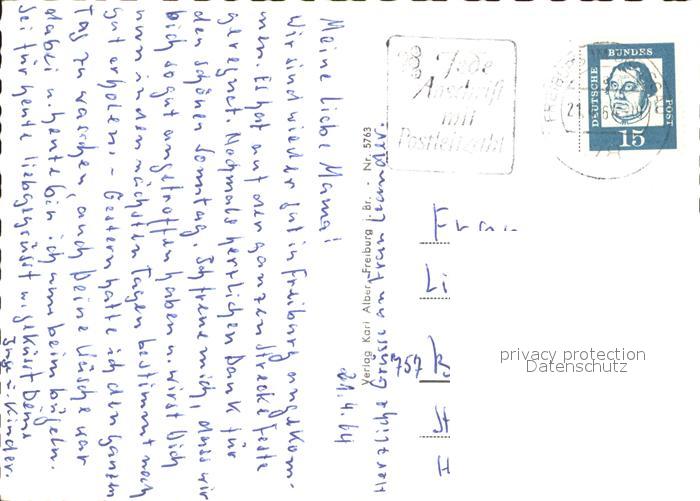 21.4.64
Meine liebe Mama!
Wir sind wieder gut in Freiburg angekom-
men. Es hat auf der ganzen Strecke feste
geregnet. Nochmals herzlichen Dank für
den schönen Sonntag. Ich freue mich, dass wir
Dich so gut angetroffen haben u. wirst Dich
nun in den nächsten Tagen bestimmt noch
gut erholen. - Gestern hatte ich den ganzen
Tag zu waschen, auch Deine Wäsche war
dabei u. heute bin ich am beim bügeln.
Sei für heute lieb gegrüsst u. geküsst Deine
Inge u. Kinder.
Herzliche Grüsse an Frau
Verlag Karl Alber, Freiburg i. Br. - Nr. 5763
Jede
Anschrift
mit
Postleitzahl
DEUTSCHE
BUNDES
POST
15
Frau
Li
757 B
St
H
privacy protection
Datenschutz